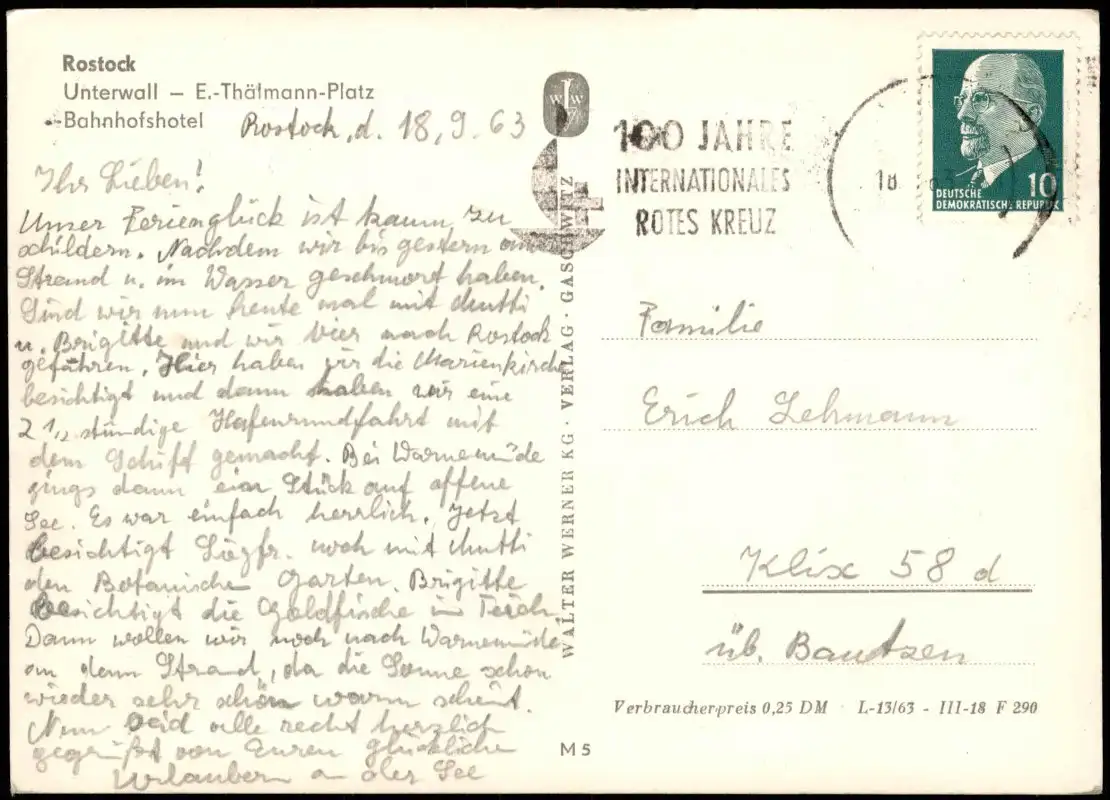 Rostock
Unterwall – E.-Thälmann-Platz
Bahnhofshotel
Rostock, d. 18.9.63
Ihr Lieben!
Unser Ferienglück ist kaum zu
schildern. Nachdem wir bis gestern am
Strand u. im Wasser geschmort haben,
sind wir nun heute mal mit Mutti
u. Brigitte und wir vier nach Rostock
gefahren. Hier haben wir die Marienkirche
besichtigt und dann haben wir eine
2 1/2 stündige Hafenrundfahrt mit
dem Schiff gemacht. Bei Warnemünde
gings dann ein Stück auf offene
See. Es war einfach herrlich. Jetzt
besichtigt Siegfr. noch mit Mutti
den Botanischen Garten. Brigitte
besichtigt die Goldfische im Teich.
Dann wollen wir noch nach Warnemünde
an den Strand, da die Sonne schon
wieder sehr schön warm scheint.
Nun seid alle recht herzlich
gegrüßt von Euren glücklichen
Urlaubern an der See
WALTER WERNER KG · VERLAG · GASCHWITZ
M 5
100 JAHRE
INTERNATIONALES
ROTES KREUZ
18
63
10
DEUTSCHE
DEMOKRATISCHE REPUBLIK
Familie
Erich Lehmann
Klix 58 d
üb. Bautzen
Verbraucherpreis 0,25 DM · L-13/63 - III-18 F 290